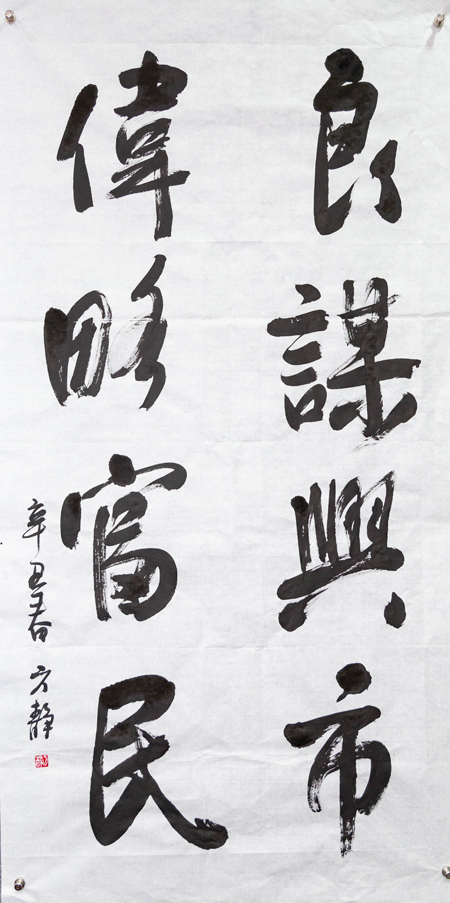 良謀興市
偉略富民
辛丑春 方靜